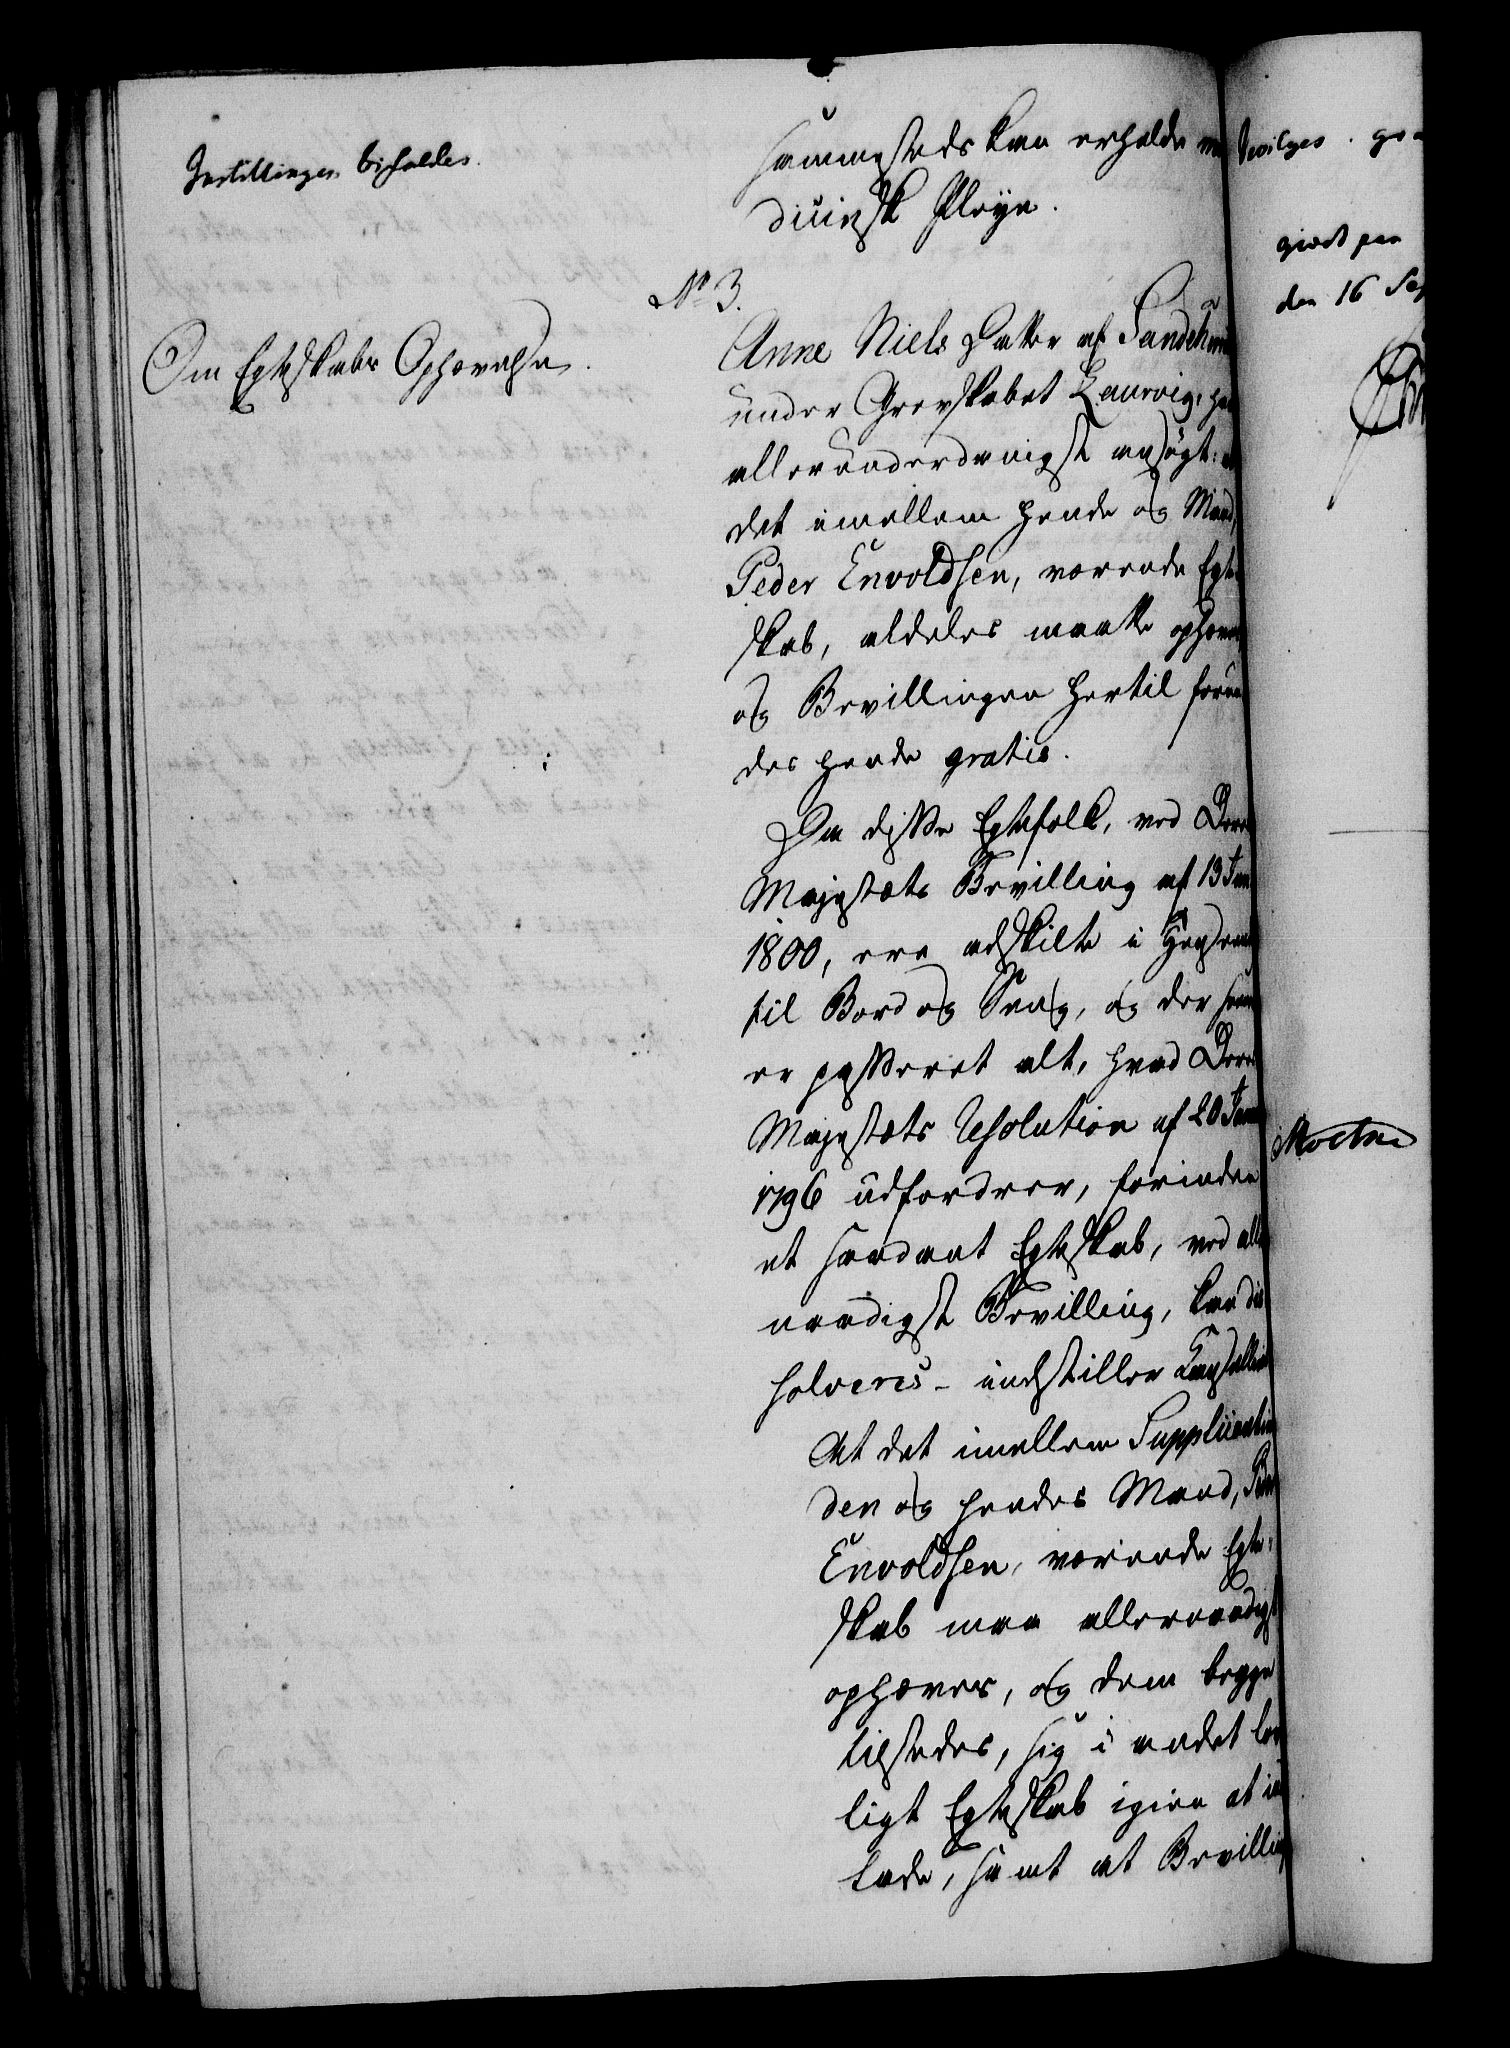 Jnstillingen bifaldes.
sammesteds kan erholde me
dicinsk Pleye.
No 3.
Om Egteskabs Ophævelse.
Anne Niels Datter af Sandeherr
under Grevskabet Laurvig, har
allerunderdanigst ansøgt: at
det imellem hende og Mand,
Peder Envoldsen, værende Egte
skab, aldeles maatte ophæves
og Bevillingen hertil forun
des hende gratis.
Da disse Egtefolk, ved Deres
Majestæts Bevilling af 13 Jun
1800, ere adskilte i Henseende
til Bord og Seng, og der saa
er passeret alt, hvad Deres
Majestæts Resolution af 20 Janu
1796 udfordrer, forinden
et saadant Egteskab, ved aller
naadigst Bevilling, kan dis
solveres - indstiller Cancelliet
At det imellem Supplicantin
den og hendes Mand, Peder
Envoldsen, værende Egte-
skab maa allernaadigst
ophæves, og dem begge
tilstedes, sig i andet lov
ligt Egteskab igien at ind
lade, samt at Bevilling
bevilges
givet paa
den 16 Sep